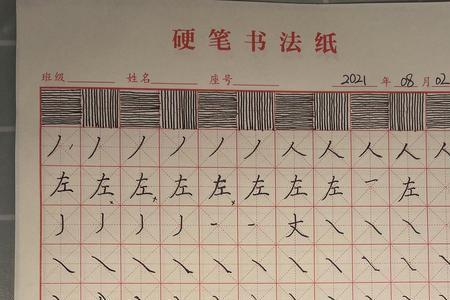 硬笔书法纸
班级 姓名 座号 2021年08月02
丿丿丿丿丿丿人人人人
左左左左左左左左一左
丿丿丿丿一一丈㇏㇏㇏
㇏㇏㇏㇏㇏㇏㇏㇏㇏㇏